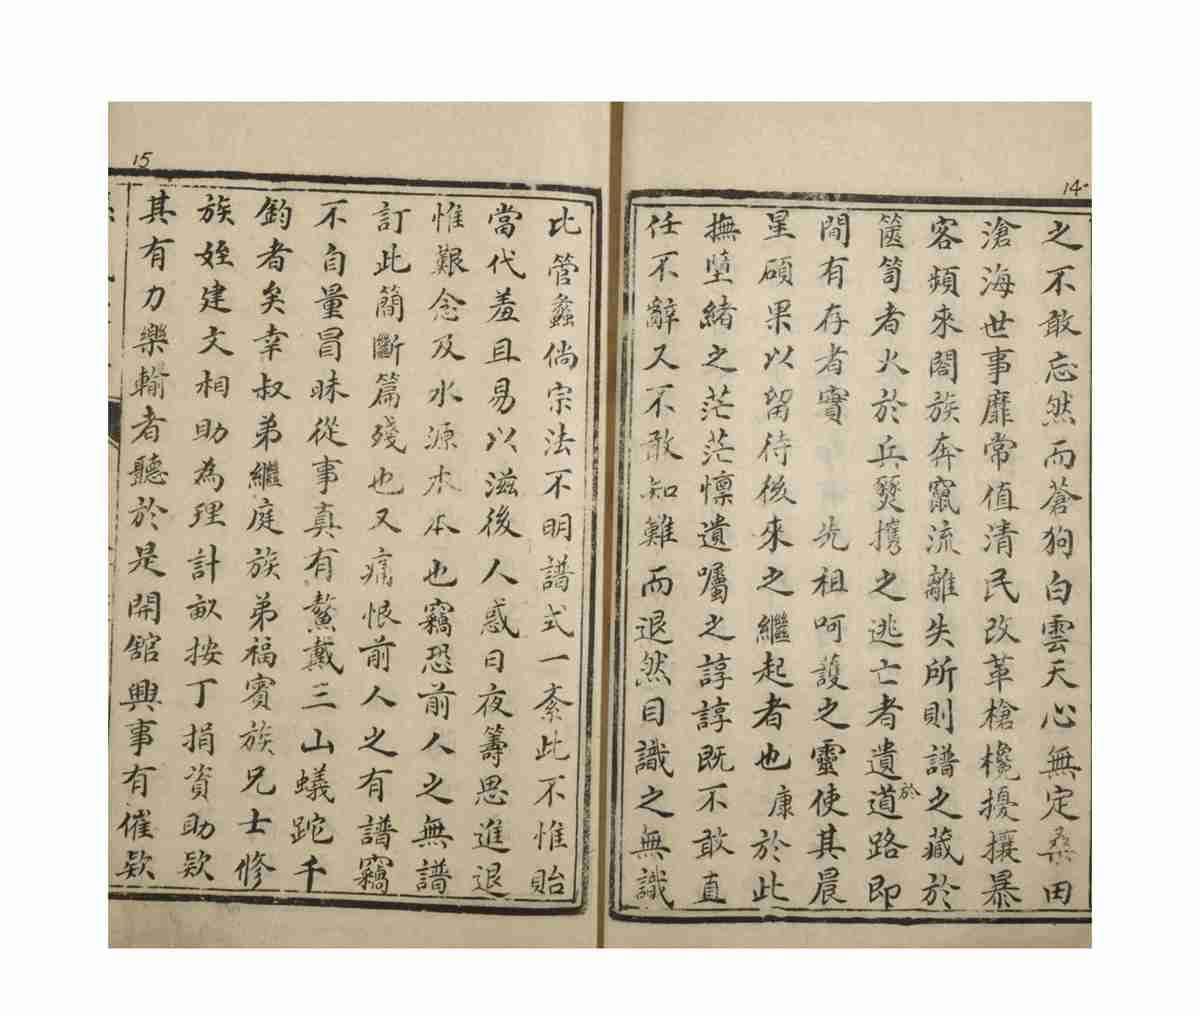 14
之不敢忘然而蒼狗白雲天心無定桑田
滄海世事靡常值清民改革槍欃擾攘暴
客頻來閤族奔竄流離失所則譜之藏於
篋笥者火於兵燹攜之逃亡者遺於道路即
間有存者實 先祖呵護之靈使其晨
星碩果以留待後來之繼起者也 康於此
撫墮緒之茫茫懍遺囑之諄諄既不敢直
任不辭又不敢知難而退然目識之無識
15
比管蠡倘宗法不明譜式一紊此不惟貽
當代羞且易以滋後人惑日夜籌思進退
惟艱念及水源木本也竊恐前人之無譜
訂此簡斷篇殘也又痛恨前人之有譜竊
不自量冒昧從事真有鰲戴三山蟻跎千
鈞者矣幸叔弟繼庭族弟福賓族兄士修
族姪建文相助為理計畝按丁捐資助欵
其有力樂輸者聽於是開館興事有催欵